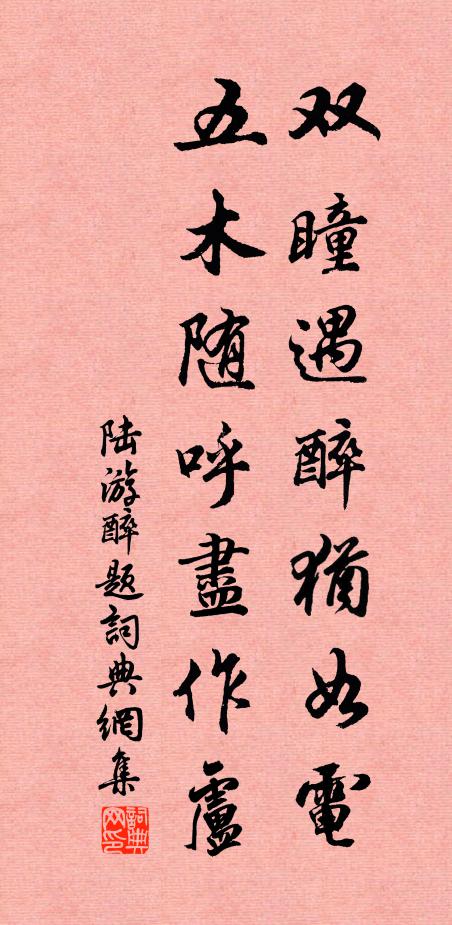 双瞳遇醉猶如電
五木随呼盡作盧
陆游醉题詞典網集
詞典网印